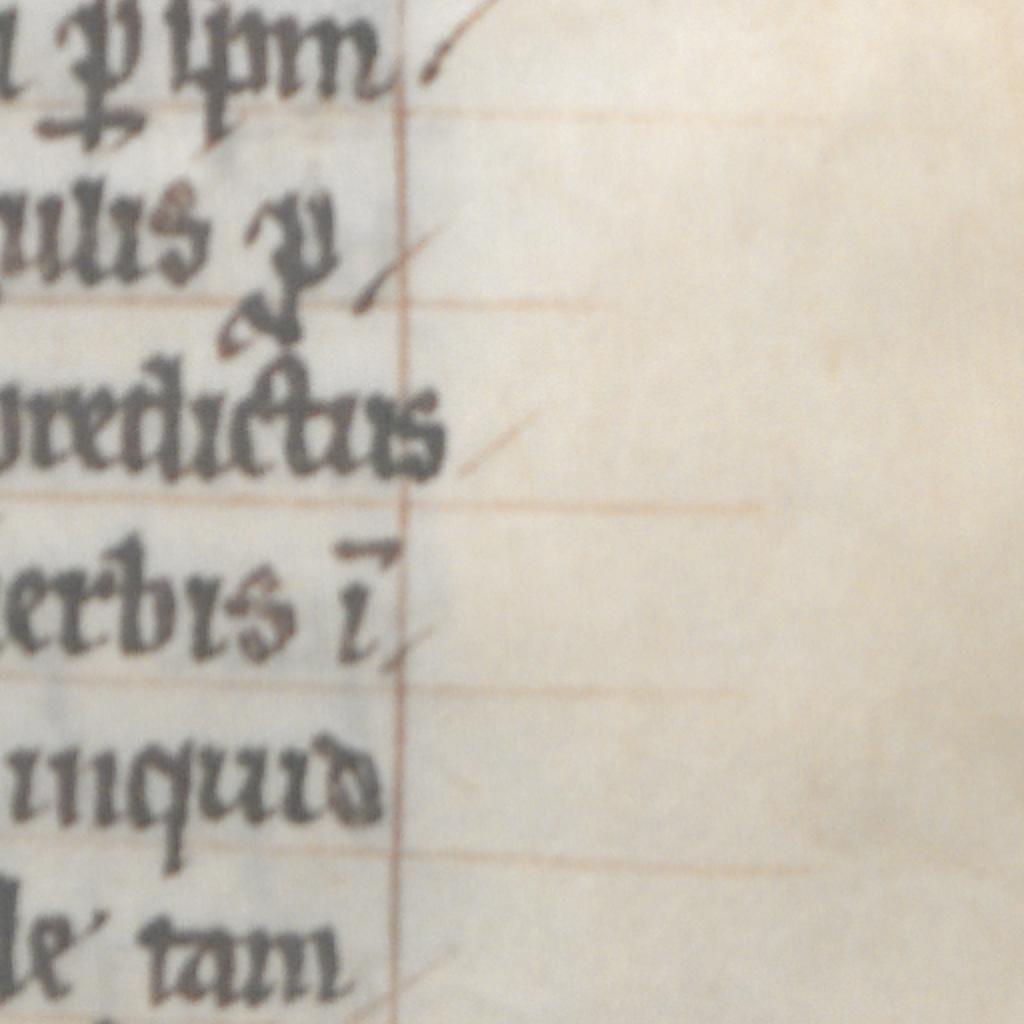 ꝑ ip̄m
ulis ꝓ
predictus
erbis ī
inquid
le tam